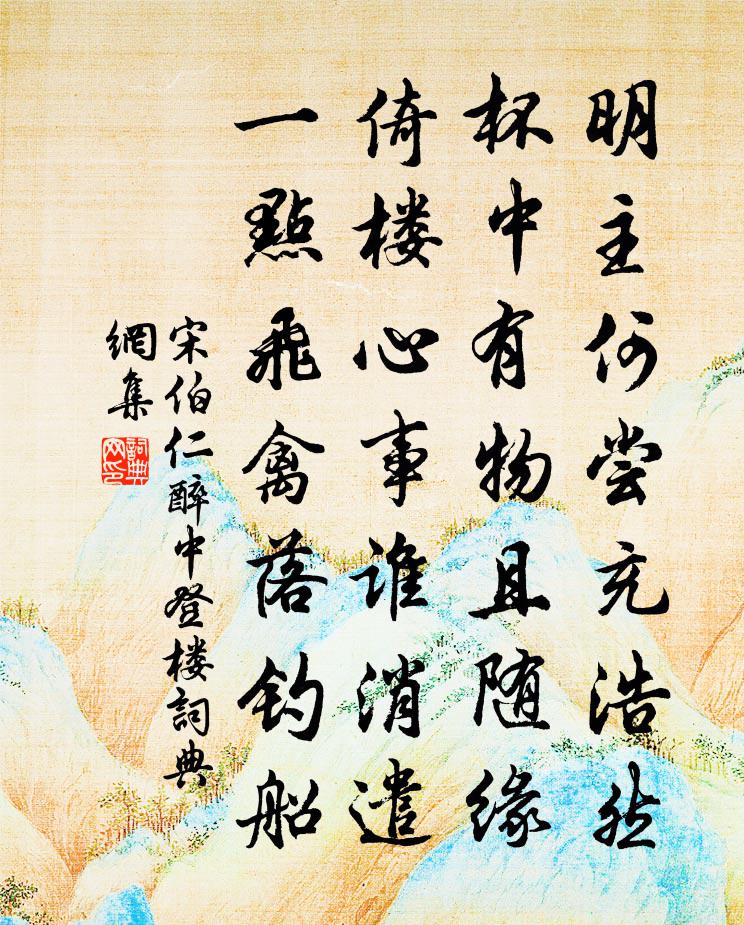 明主何尝充浩然
杯中有物且随缘
倚楼心事谁消遣
一點飛禽落钓船
宋伯仁醉中登楼詞典
網集
詞典
网印